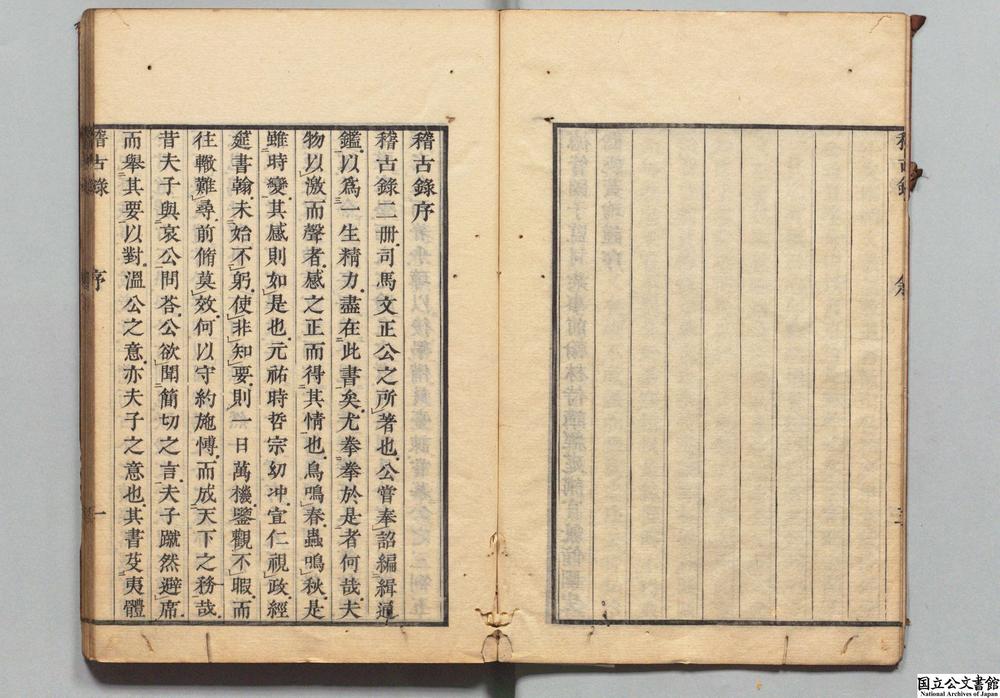 稽古錄序
稽古錄二冊司馬文正公之所著也公嘗奉詔編緝通
鑑以爲一生精力盡在此書矣尤拳拳於是者何哉夫
物以激而聲者感之正而得其情也鳥鳴春蟲鳴秋是
雖時變其感則如是也元祐時哲宗幼冲宣仁視政經
筵書翰未始不躬使非知要則一日萬機鑒觀不暇而
往轍難尋前脩莫效何以守約施愽而成天下之務哉
昔夫子與哀公問荅公欲聞簡切之言夫子蹴然避席
而舉其要以對溫公之意亦夫子之意也其書芟夷體
稽古錄
序
一
国立公文書館
National Archives of Japan